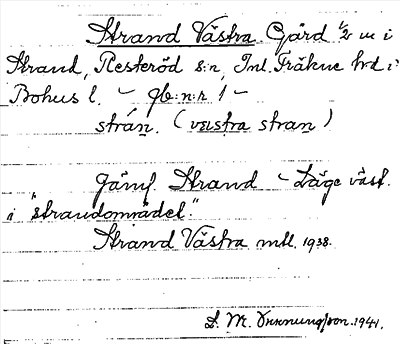 Strand Västra Gård 1/2 m i
Strand, Resteröd s:n, Inl. Fräkne hd i
Bohus l. – gb:n:r 1 –
strán. (vɛstra stran)
Jämf. Strand – Läge väst.
i "strandområdet".
Strand Västra mtl. 1938.
1941.